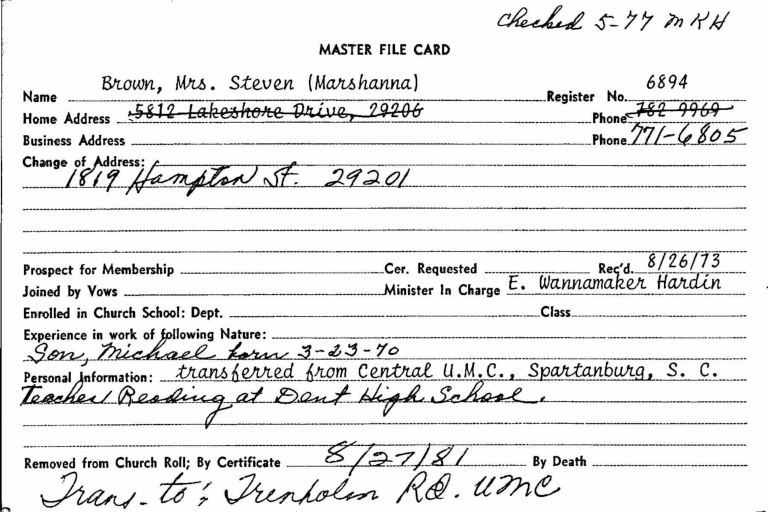 Checked 5-77 MKH
MASTER FILE CARD
Name Brown, Mrs. Steven (Marshanna) Register No. 6894
Home Address 5812 Lakeshore Drive, 29206 Phone 782 9969
Business Address Phone 771-6805
Change of Address:
1819 Hampton St. 29201
Prospect for Membership Cer. Requested Rec'd. 8/26/73
Joined by Vows Minister In Charge E. Wannamaker Hardin
Enrolled in Church School: Dept. Class
Experience in work of following Nature:
Son, Michael born 3-23-70
Personal Information: transferred from Central U.M.C., Spartanburg, S. C.
Teaches Reading at Dent High School.
Removed from Church Roll; By Certificate 8/27/81 By Death
Trans. to: Trenholm Rd. UMC